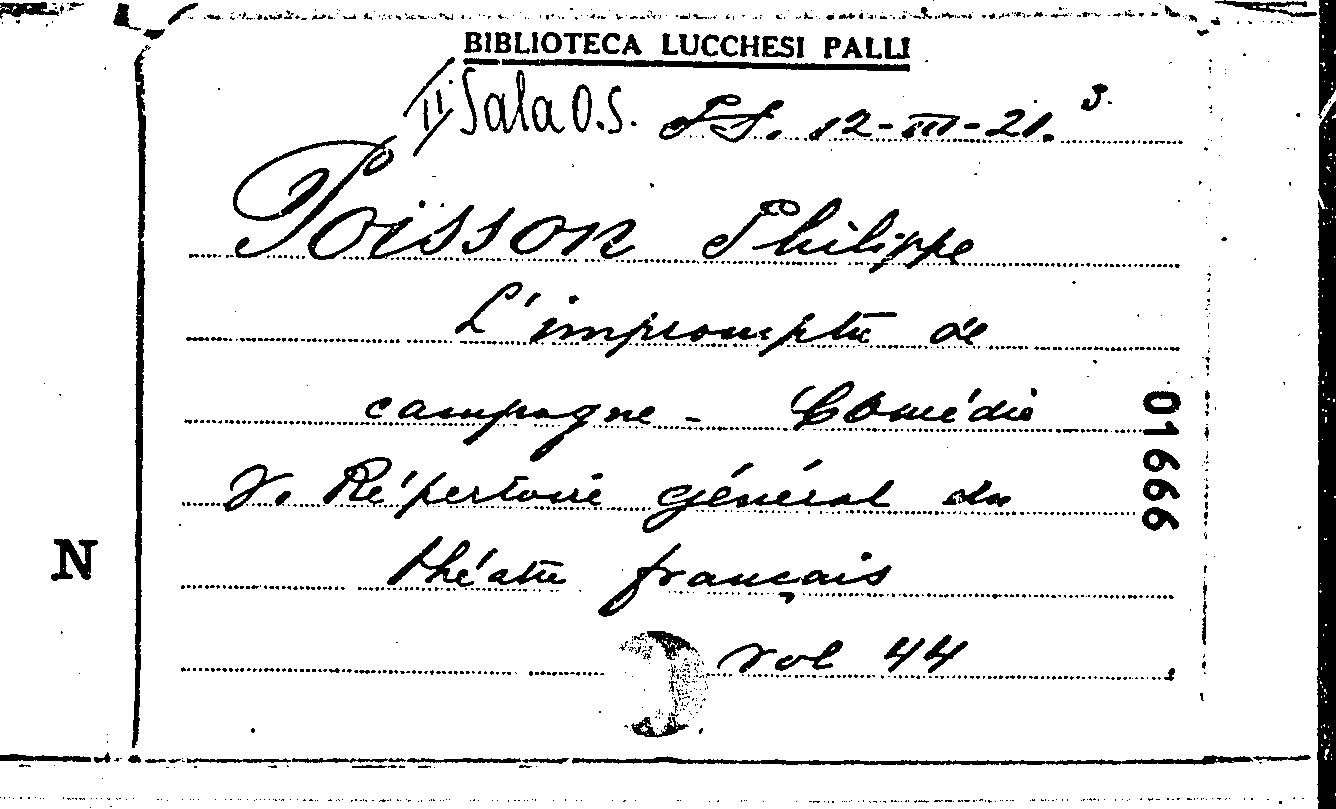 BIBLIOTECA LUCCHESI PALLI
II Sala O.S. 12-III-21. 3.
Poisson Philippe
L'impromptu de
campagne - Comédie
V. Répertoire général du
théatre français
vol 44
01666
N